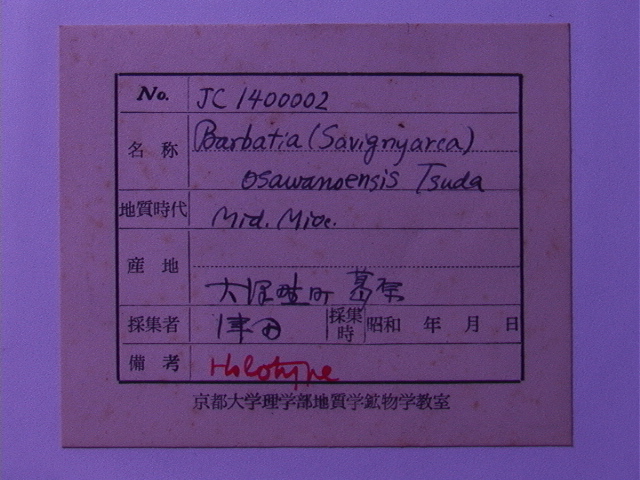 No. JC 1400002
名称 Barbatia (Savignyarca)
osawanoensis Tsuda
地質時代 Mid. Mioc.
産地
大沢野町 葛原
採集者 津田 採集時 昭和 年 月 日
備考 Holotype
京都大学理学部地質学鉱物学教室